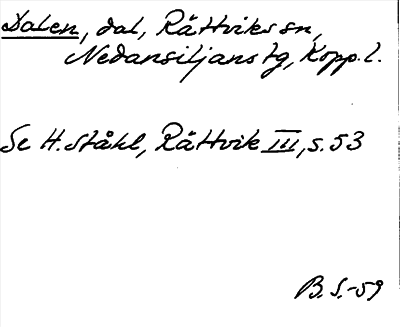 Dalen, dal, Rättviks sn,
Nedansiljans tg, Kopp. l.
Se H. Ståhl, Rättvik III, s. 53
B. S. -59